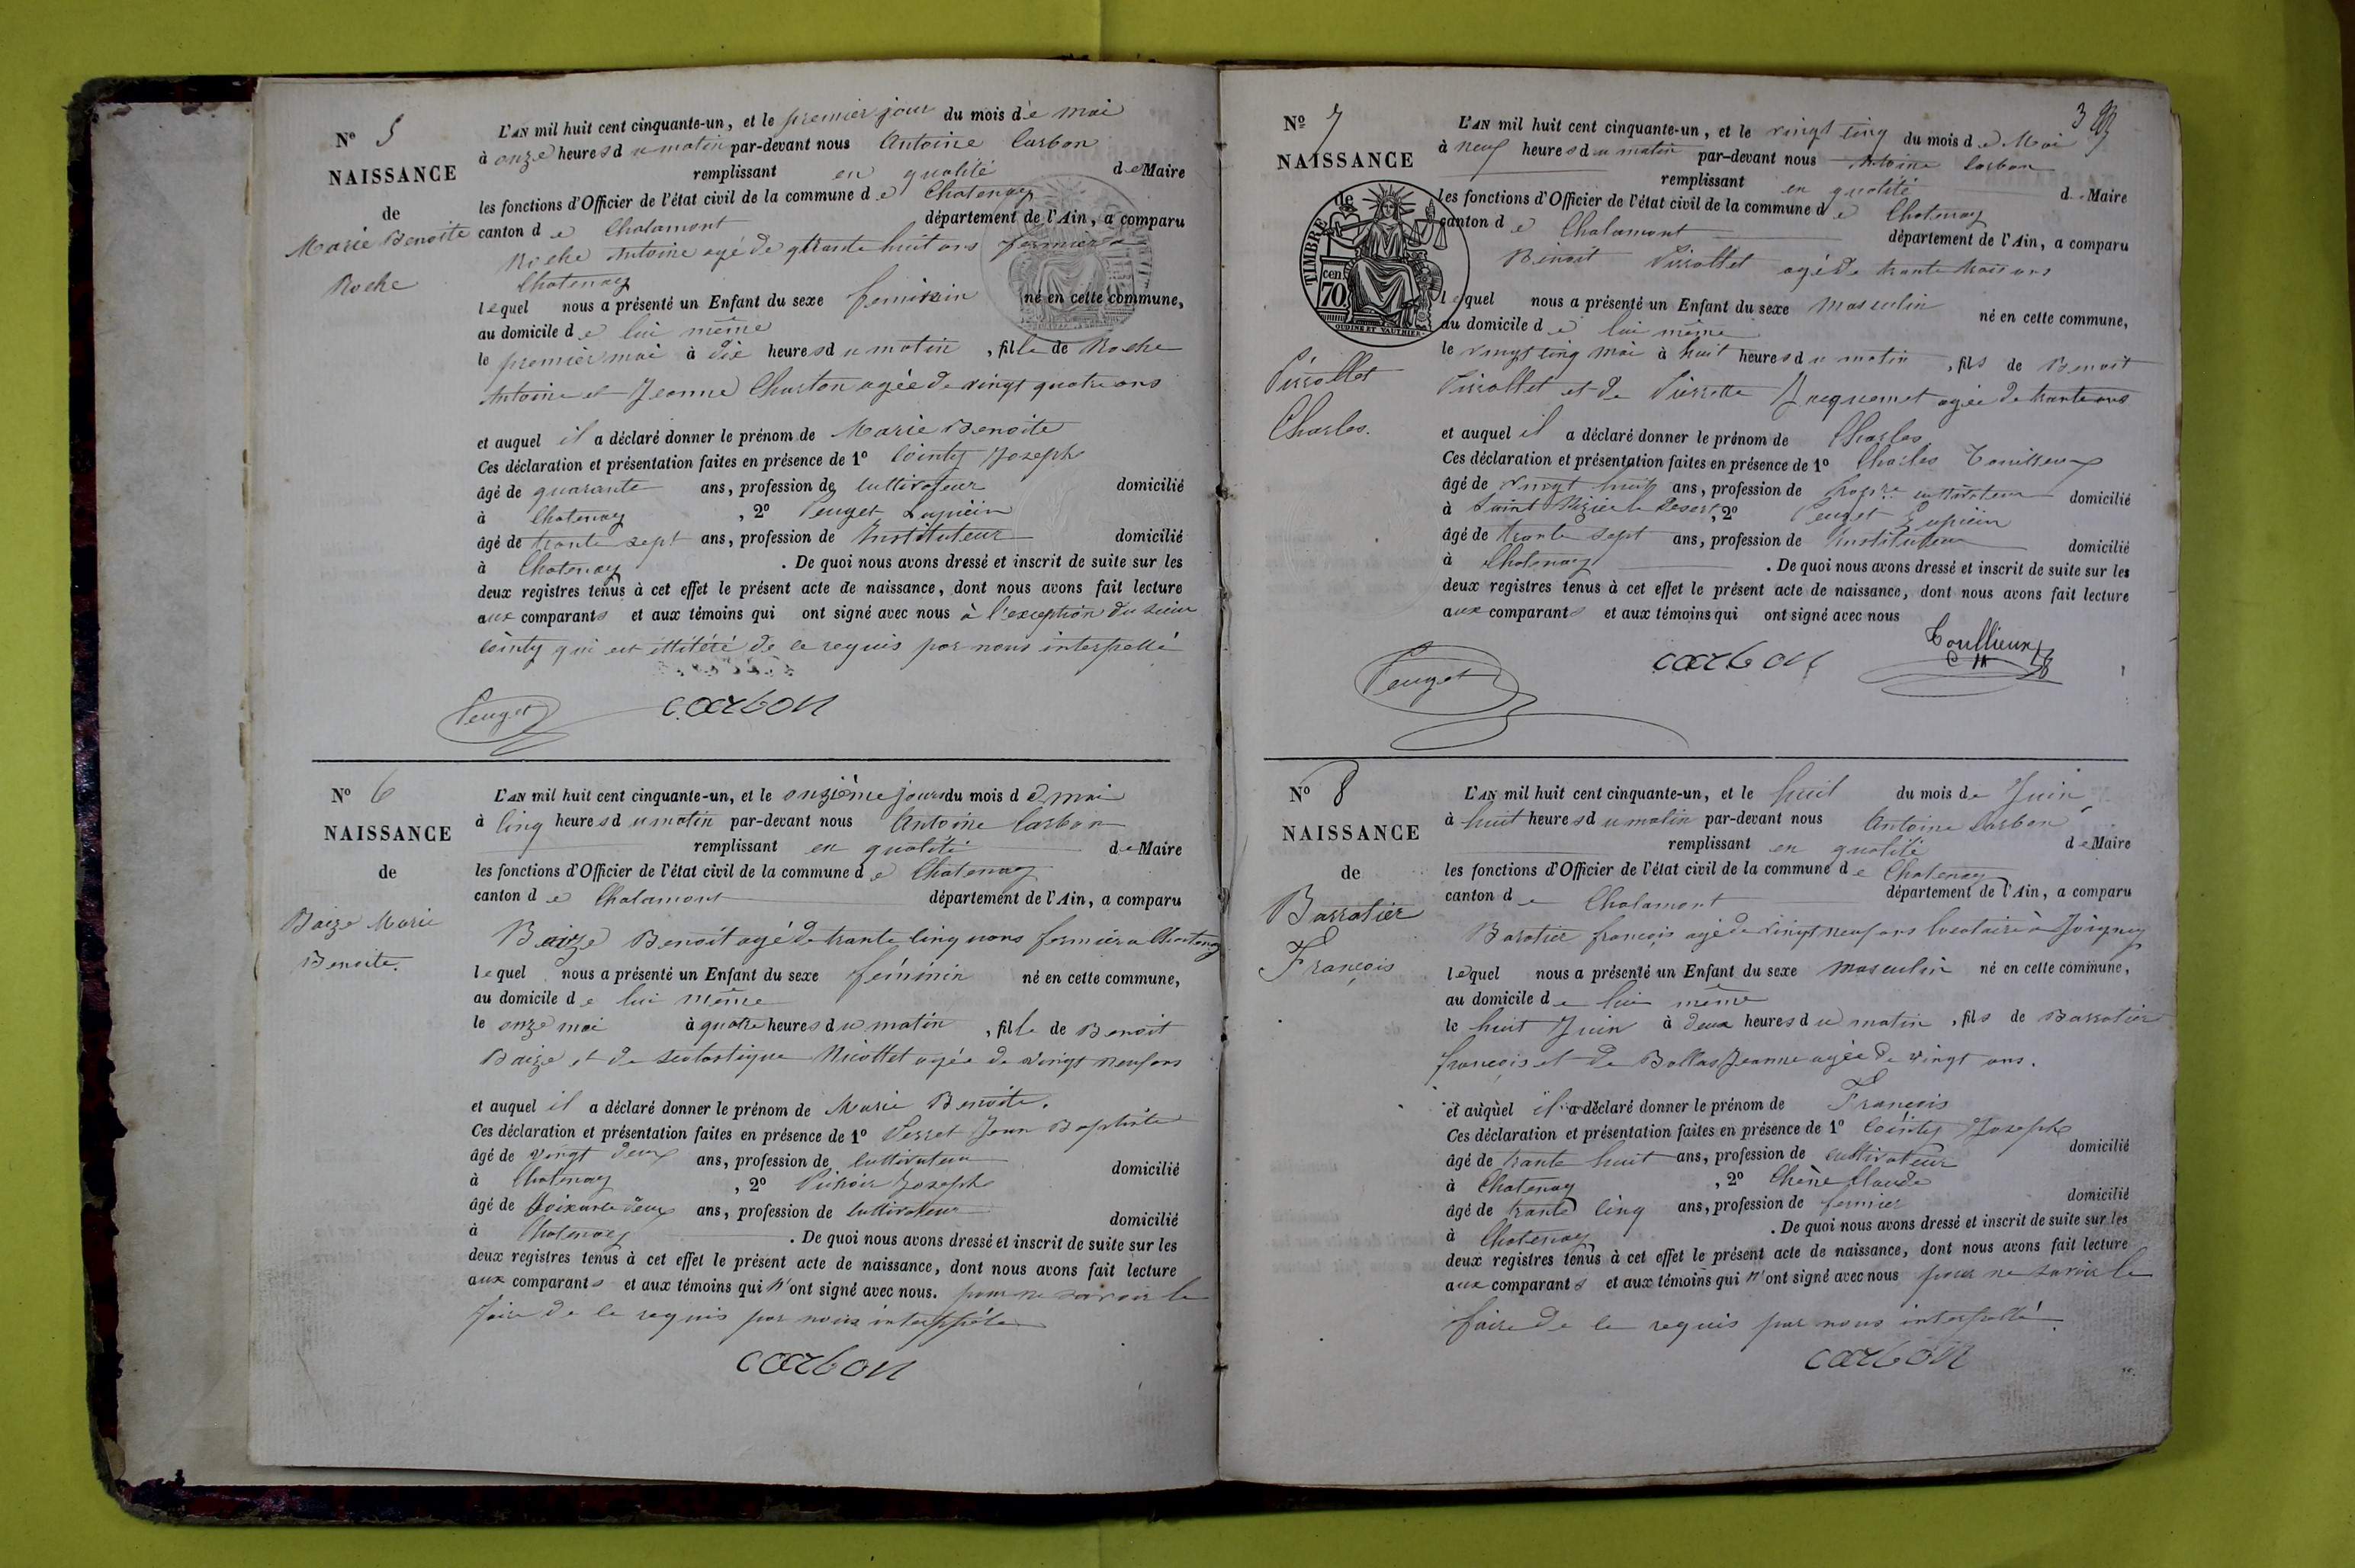 N° 5
NAISSANCE
de
Marie Benoite
Roche
L'AN mil huit cent cinquante-un, et le premier jour du mois de mai
à onze heures du matin par-devant nous Antoine Carbon
remplissant en qualité de Maire
les fonctions d'Officier de l'état civil de la commune de Chatenay
canton de Chalamont département de l'Ain, a comparu
Roche Antoine agé de quarante huit ans fermier a
Chatenay
lequel nous a présenté un Enfant du sexe feminin né en cette commune,
au domicile de lui même
le premier mai à dix heures du matin, fille de Roche
Antoine et Jeanne Charton agée de vingt quatre ans
et auquel il a déclaré donner le prénom de Marie Benoite
Ces déclaration et présentation faites en présence de 1° Cointy Joseph
âgé de quarante ans, profession de cultivateur domicilié
à Chatenay, 2° Peuget Lupicin
âgé de trante sept ans, profession de Instituteur domicilié
à Chatenay. De quoi nous avons dressé et inscrit de suite sur les
deux registres tenus à cet effet le présent acte de naissance, dont nous avons fait lecture
aux comparants et aux témoins qui ont signé avec nous à l'exception du sieur
Cointy qui est illitéré de ce requis par nous interpellé
Peuget carbon
N° 6
NAISSANCE
de
Baize Marie
Benoite.
L'AN mil huit cent cinquante-un, et le onzième jour du mois de mai
à cinq heures du matin par-devant nous Antoine Carbon
remplissant en qualité de Maire
les fonctions d'Officier de l'état civil de la commune de Chatenay
canton de Chalamont département de l'Ain, a comparu
Baize Benoit agé de trante cinq ans fermier a Chatenay
lequel nous a présenté un Enfant du sexe féminin né en cette commune,
au domicile de lui même
le onze mai à quatre heures du matin, fille de Benoit
Baize et de Scolastique Nicollet agée de vingt neuf ans
et auquel il a déclaré donner le prénom de Marie Benoite.
Ces déclaration et présentation faites en présence de 1° Perret Jean Baptiste
âgé de vingt deux ans, profession de cultivateur domicilié
à Chatenay, 2° Joseph
âgé de soixante deux ans, profession de cultivateur domicilié
à Chatenay. De quoi nous avons dressé et inscrit de suite sur les
deux registres tenus à cet effet le présent acte de naissance, dont nous avons fait lecture
aux comparants et aux témoins qui n'ont signé avec nous. pour ne savoir le
faire de ce requis par nous interpellé
carbon
3
N° 7
NAISSANCE
de
TIMBRE
cen 70
OUDINÉ ET VAUTHIER
Pirrollet
Charles.
L'AN mil huit cent cinquante-un, et le vingt cinq du mois de Mai
à neuf heures du matin par-devant nous Antoine Carbon
remplissant en qualité de Maire
les fonctions d'Officier de l'état civil de la commune de Chatenay
canton de Chalamont département de l'Ain, a comparu
Benoit Pirrollet agé de trante trois ans
lequel nous a présenté un Enfant du sexe masculin né en cette commune,
au domicile de lui même
le vingt cinq mai à huit heures du matin, fils de Benoit
Pirrollet et de Pierrette Jacquemet agée de trante ans
et auquel il a déclaré donner le prénom de Charles
Ces déclaration et présentation faites en présence de 1° Charles Touillieux
âgé de vingt huit ans, profession de propre cultivateur domicilié
à Saint Nizier le Desert, 2° Peuget Lupicin
âgé de trante sept ans, profession de Instituteur domicilié
à Chatenay. De quoi nous avons dressé et inscrit de suite sur les
deux registres tenus à cet effet le présent acte de naissance, dont nous avons fait lecture
aux comparants et aux témoins qui ont signé avec nous
Peuget carbon Toullieux
N° 8
NAISSANCE
de
Barratier
François
L'AN mil huit cent cinquante-un, et le huit du mois de Juin
à huit heures du matin par-devant nous Antoine Carbon
remplissant en qualité de Maire
les fonctions d'Officier de l'état civil de la commune de Chatenay
canton de Chalamont département de l'Ain, a comparu
Baratier françois agé de vingt neuf ans locataire à Joigney
lequel nous a présenté un Enfant du sexe masculin né en cette commune,
au domicile de lui même
le huit Juin à deux heures du matin, fils de Barratier
françois et de Ballas Jeanne agée de vingt ans.
et auquel il a déclaré donner le prénom de François
Ces déclaration et présentation faites en présence de 1° Cointy Joseph
âgé de trante huit ans, profession de cultivateur domicilié
à Chatenay, 2° Chène Claude
âgé de trante cinq ans, profession de fermier domicilié
à Chatenay. De quoi nous avons dressé et inscrit de suite sur les
deux registres tenus à cet effet le présent acte de naissance, dont nous avons fait lecture
aux comparants et aux témoins qui n'ont signé avec nous pour ne savoir le
faire de ce requis par nous interpellé.
carbon